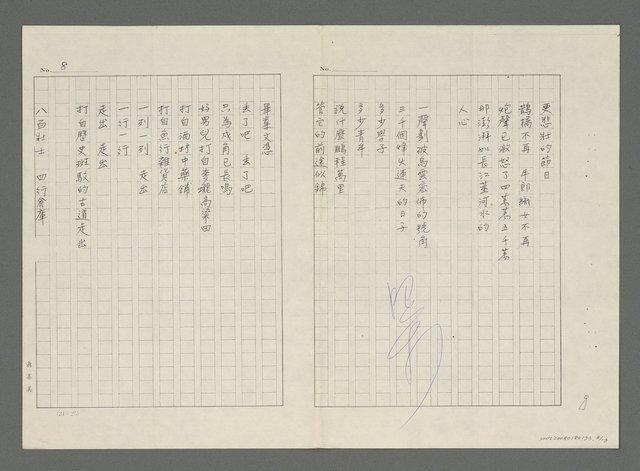 更悲壯的節日
鵲橋不再 牛郎織女不再
炮聲已激怒了四萬萬五千萬
那澎湃如長江黃河水的
人心
一聲劃破烏雲密佈的號角
三千個烽火連天的日子
多少學子
多少青年
說什麼鵬程萬里
管它的前途似錦
No. 8
畢業文憑
丟了吧 丟了吧
只為戍角已長鳴
好男兒 打自麥壠高粱田
打自酒坊中藥鋪
打自魚行雜貨店
一列一列 走出
一行一行
走出 走出
打自歷史斑駁的古道走出
八百壯士 四行倉庫
No.
8